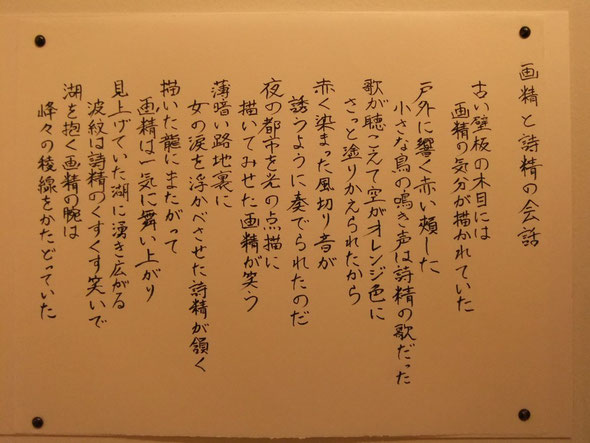 画精と詩精の会話
古い壁板の木目には
画精の気分が描かれていた
戸外に響く赤い頬した
小さな鳥の鳴き声は詩精の歌だった
歌が聴こえて空がオレンジ色に
さっと塗りかえられたから
赤く染まった風切り音が
誘うように奏でられたのだ
夜の都市を光の点描に
描いてみせた画精が笑う
薄暗い路地裏に
女の涙を浮かべさせた詩精が頷く
描いた龍にまたがって
画精は一気に舞い上がり
見上げていた湖に湧き広がる
波紋は詩精のくすくす笑いで
湖を抱く画精の腕は
峰々の稜線をかたどっていた